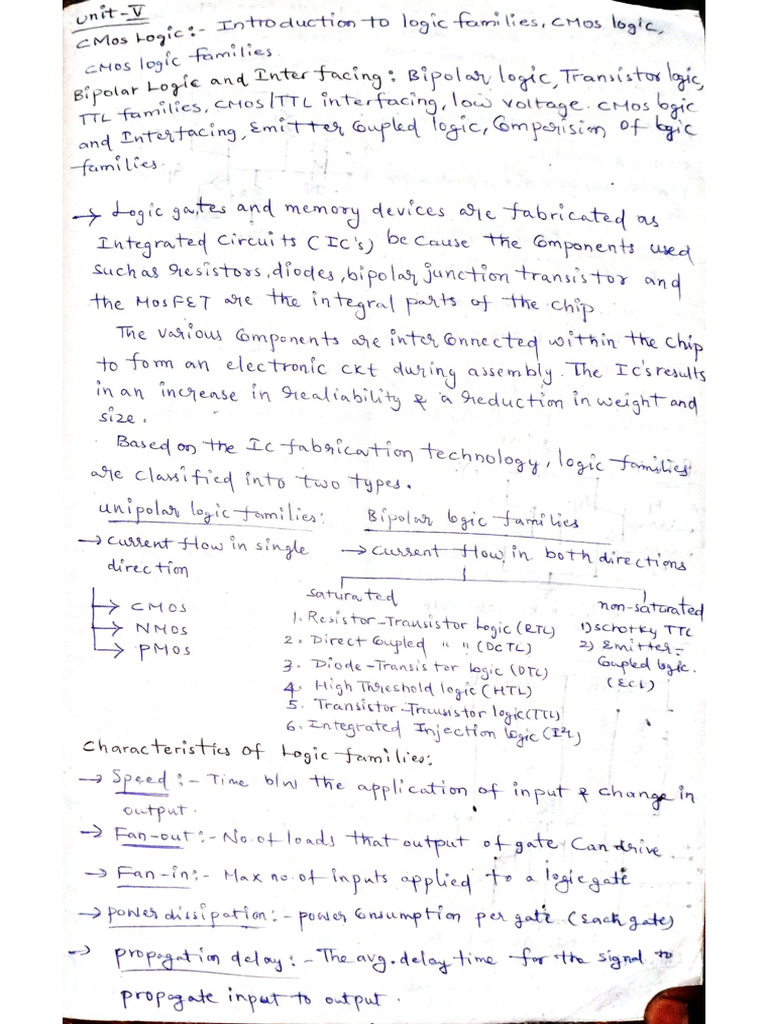 Unit-V
CMos Logic:- Introduction to logic families, CMos logic,
CMOS logic families.
Bipolar Logic and Interfacing: Bipolar logic, Transistor logic,
TTL families, CMOS/TTL interfacing, low voltage CMos logic
and Interfacing, Emitter Coupled logic, Comparision of logic
families.
→ Logic gates and memory devices are fabricated as
Integrated Circuits (IC's) because the Components used
such as resistors, diodes, bipolar junction transistor and
the MOSFET are the integral parts of the chip.
The various Components are interconnected within the chip
to form an electronic ckt during assembly. The Ic's results
in an increase in realiability & a reduction in weight and
size.
Based on the Ic fabrication technology, logic families
are classified into two types.
unipolar logic families: Bipolar logic families
→ current flow in single → current flow in both directions
direction
saturated non-saturated
→ CMOS 1. Resistor-Transistor Logic (RTL) 1) schotky TTL
→ NMOS 2. Direct Coupled " " (DCTL) 2) Emitter-
→ PMOS 3. Diode-Transistor logic (DTL) Coupled logic.
4. High Threshold logic (HTL) (ECL)
5. Transistor-Transistor logic (TTL)
6. Integrated Injection logic (I²L)
Characteristics of Logic families:
→ Speed :- Time b/w the application of input & change in
output.
→ Fan-out :- No. of loads that output of gate Can drive.
→ Fan-in :- Max no. of inputs applied to a logic gate
→ power dissipation :- power Consumption per gate (Each gate)
→ propagation delay :- The avg. delay time for the signal to
propagate input to output.